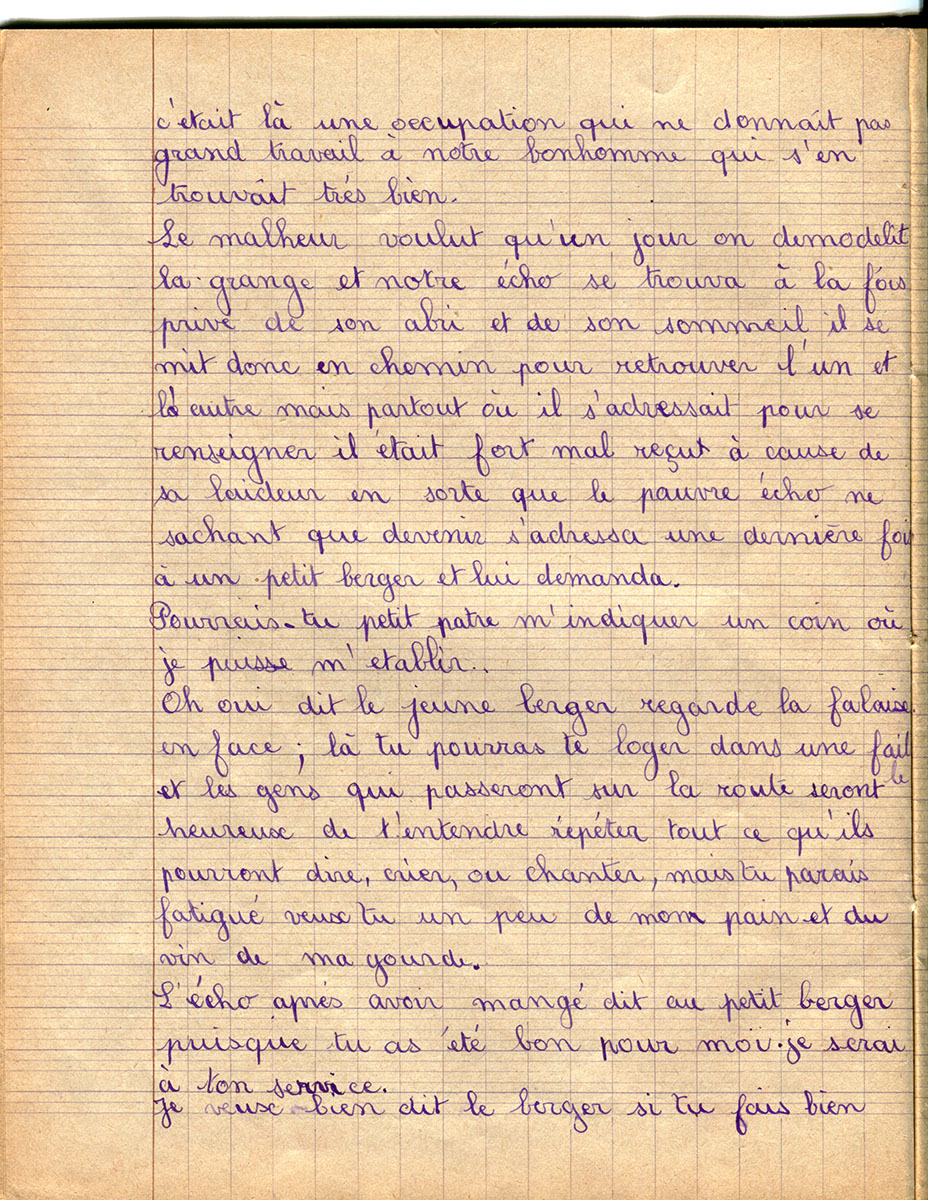 c'était là une occupation qui ne donnait pas
grand travail à notre bonhomme qui s'en
trouvait trés bien.
Le malheur voulut qu'un jour on demodelit
la grange et notre écho se trouva à la fois
privé de son abri et de son sommeil il se
mit donc en chemin pour retrouver l'un et
l'autre mais partout où il s'adressait pour se
renseigner il était fort mal reçut à cause de
sa laideur en sorte que le pauvre écho ne
sachant que devenir s'adressa une dernière fois
à un petit berger et lui demanda.
Pourrais-tu petit patre m'indiquer un coin où
je puisse m'etablir..
Oh oui dit le jeune berger regarde la falaise
en face ; là tu pourras te loger dans une faille
et les gens qui passeront sur la route seront
heureux de t'entendre répéter tout ce qu'ils
pourront dire, crier, ou chanter, mais tu parais
fatigué veux tu un peu de mon pain et du
vin de ma gourde.
L'écho aprés avoir mangé dit au petit berger
puisque tu as été bon pour moi je serai
à ton service.
Je veux bien dit le berger si tu fais bien